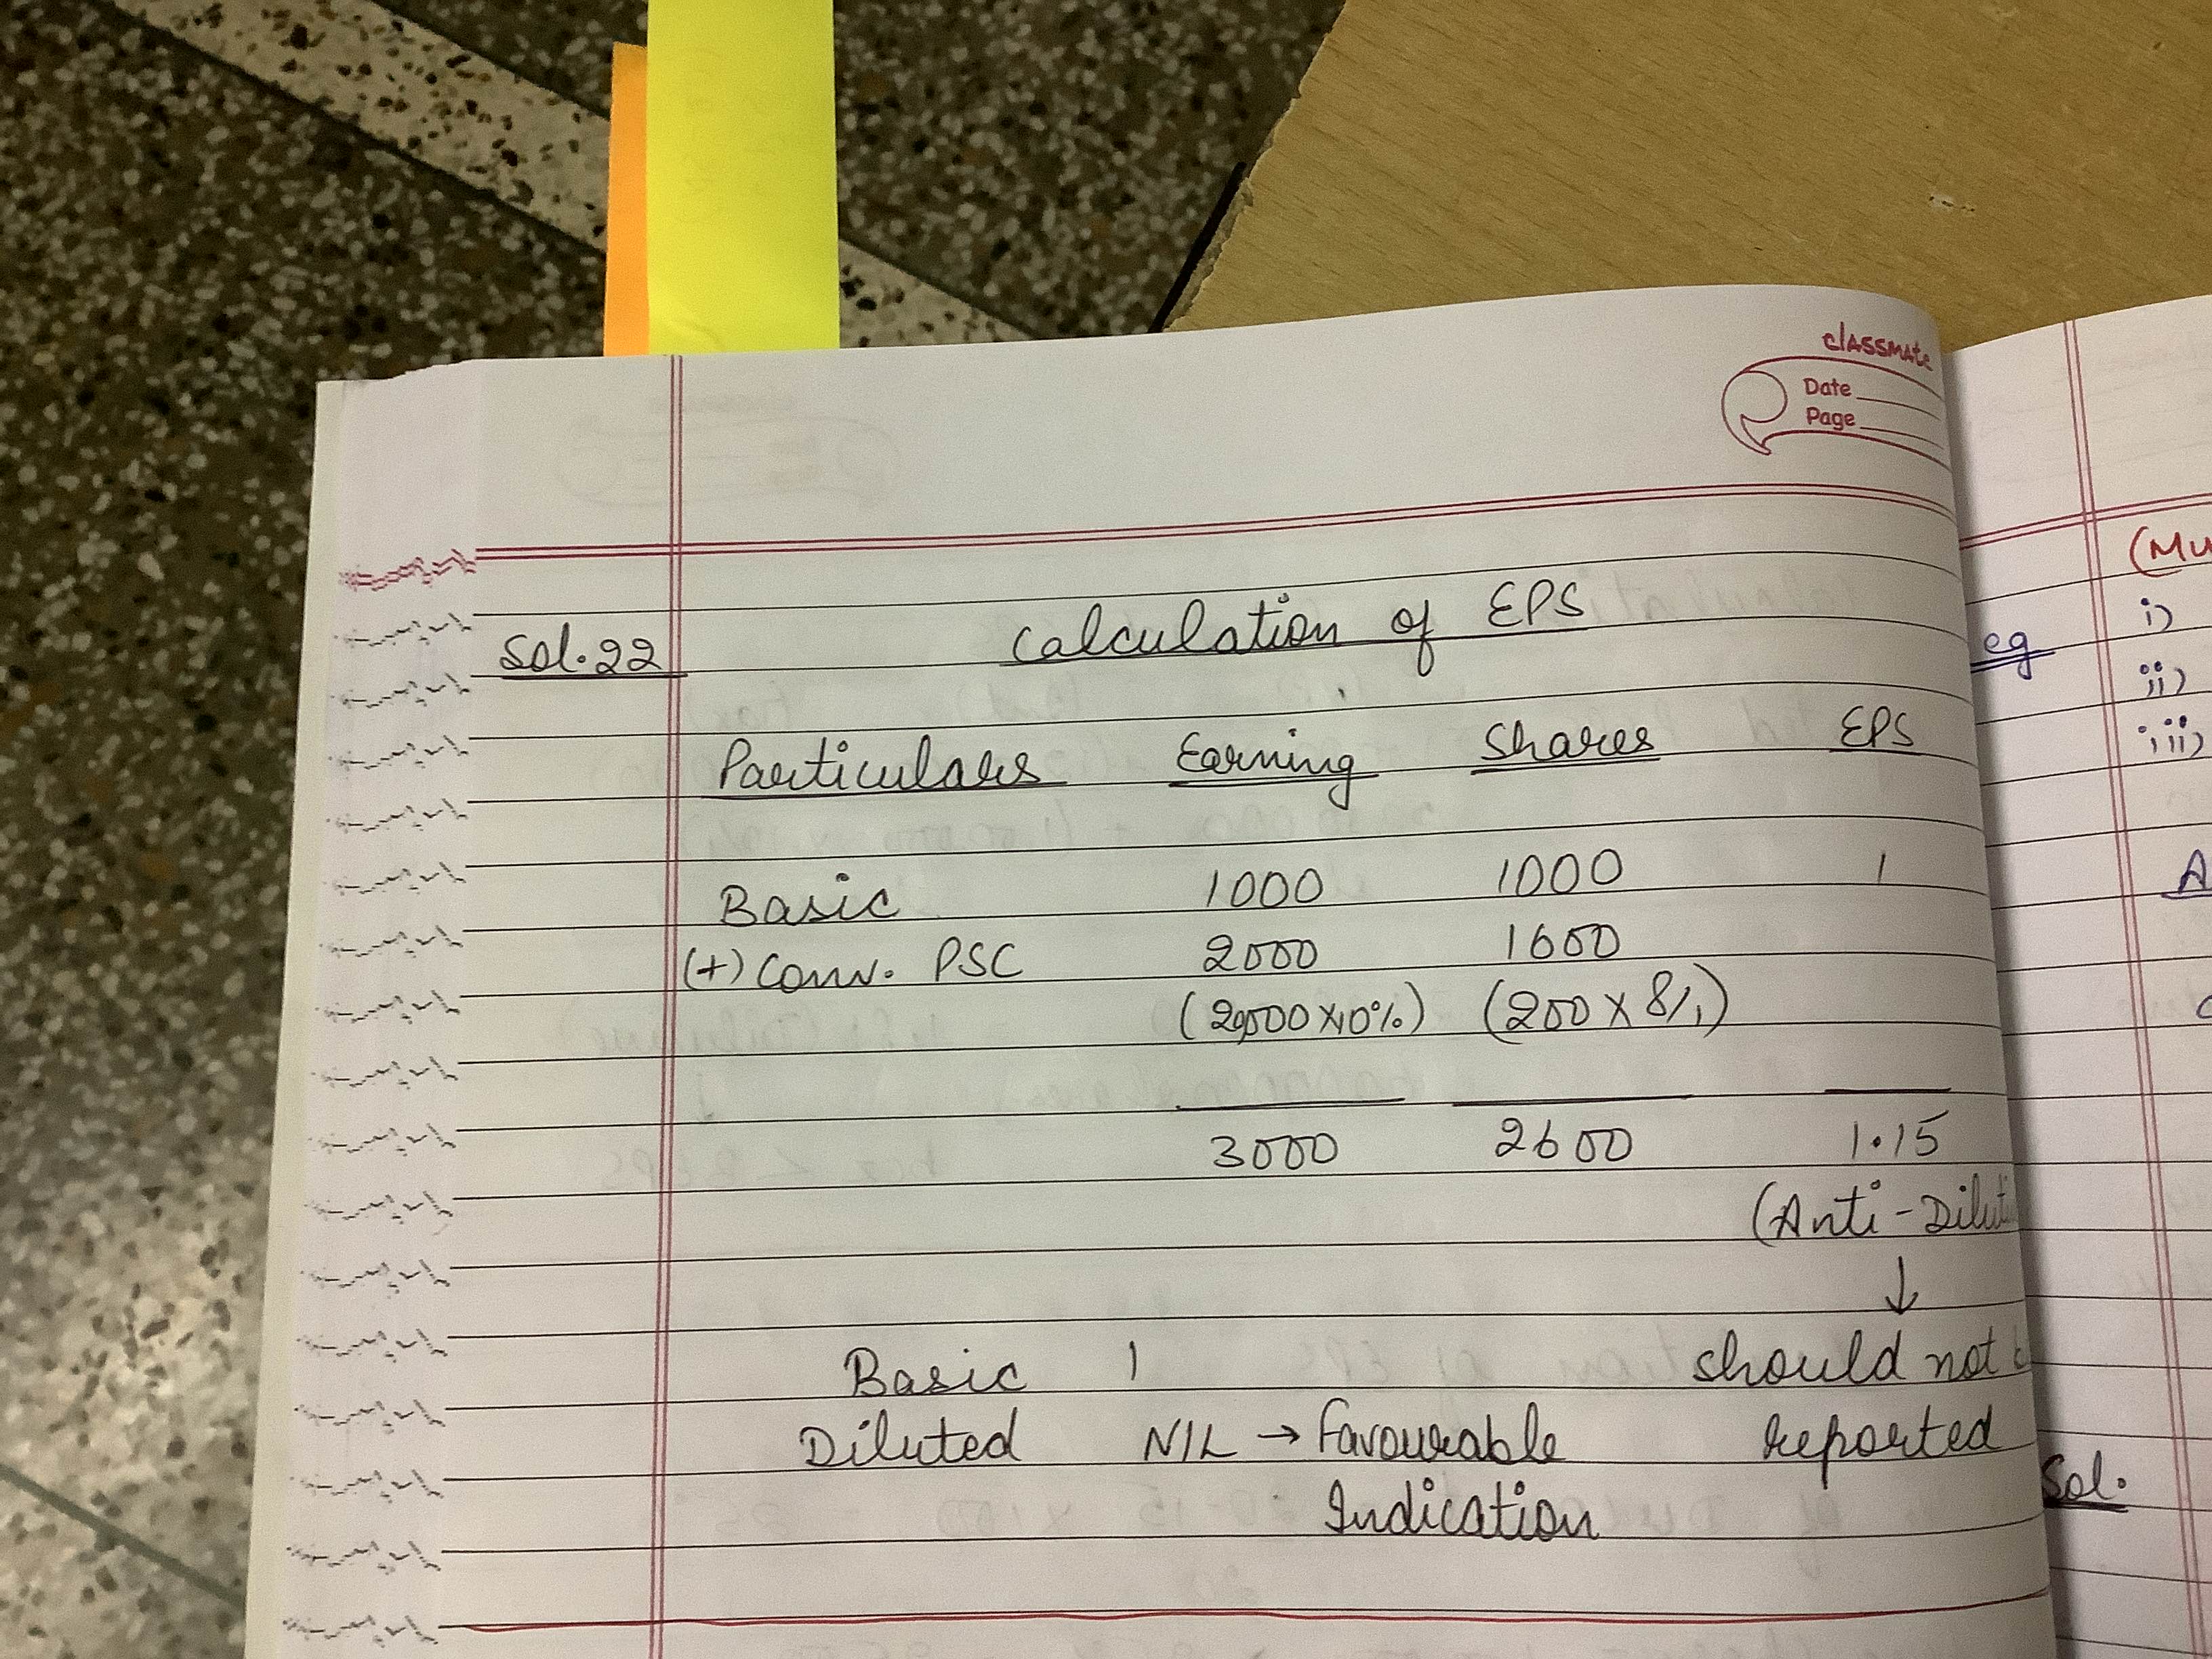 classmate
Date
Page
Sol.22 Calculation of EPS
Particulars Earning Shares EPS
Basic 1000 1000 1
(+) Conv. PSC 2000 1600
(20,000 x 10%) (200 x 8/1)
3000 2600 1.15
(Anti-Diluti
↓
Basic 1 should not
Diluted NIL → Favourable reported
Indication
(Mu
i)
eg
ii)
iii)
A
Sol.